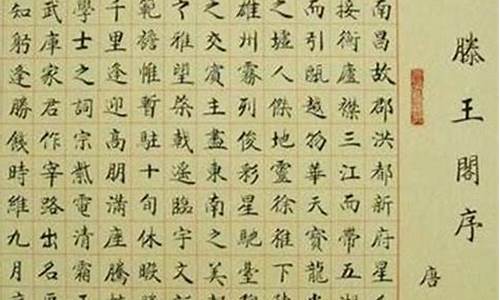 滕王閣序
唐
南昌故郡洪都新府星
接衡廬襟三江而帶五湖
而引甌越物華天寶龍光
之墟人傑地靈徐孺下
雄州霧列俊彩星馳臺
之交賓主盡東南之美
之雅望棨戟遙臨宇文新
範襜惟暫駐十旬休暇
千里逢迎高朋滿座騰
學士之詞宗紫電清霜王
武庫家君作宰路出名區
知躬逢勝餞時維九月序